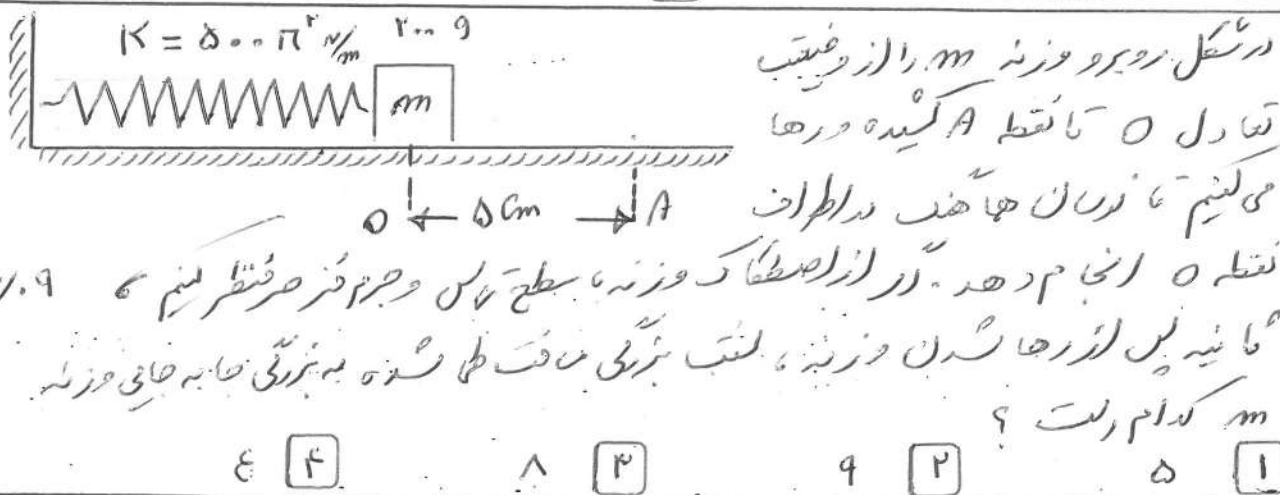 K = ۵۰۰ π² N/m ۲۰۰ g
m
O ← ۵ Cm → A
در شکل روبرو وزنه m را از وضعیت
تعادل O تا نقطه A کشیده و رها
می کنیم تا نوسان هماهنگ در اطراف
نقطه O انجام دهد. اگر از اصطکاک وزنه با سطح تماس و جرم فنر صرفنظر کنیم ،
ثانیه پس از رها شدن وزنه ، نسبت بزرگی مسافت طی شده به بزرگی جابه جایی وزنه
m کدام است ؟
۱ ۵ ۲ ۹ ۳ ۸ ۴ ۴